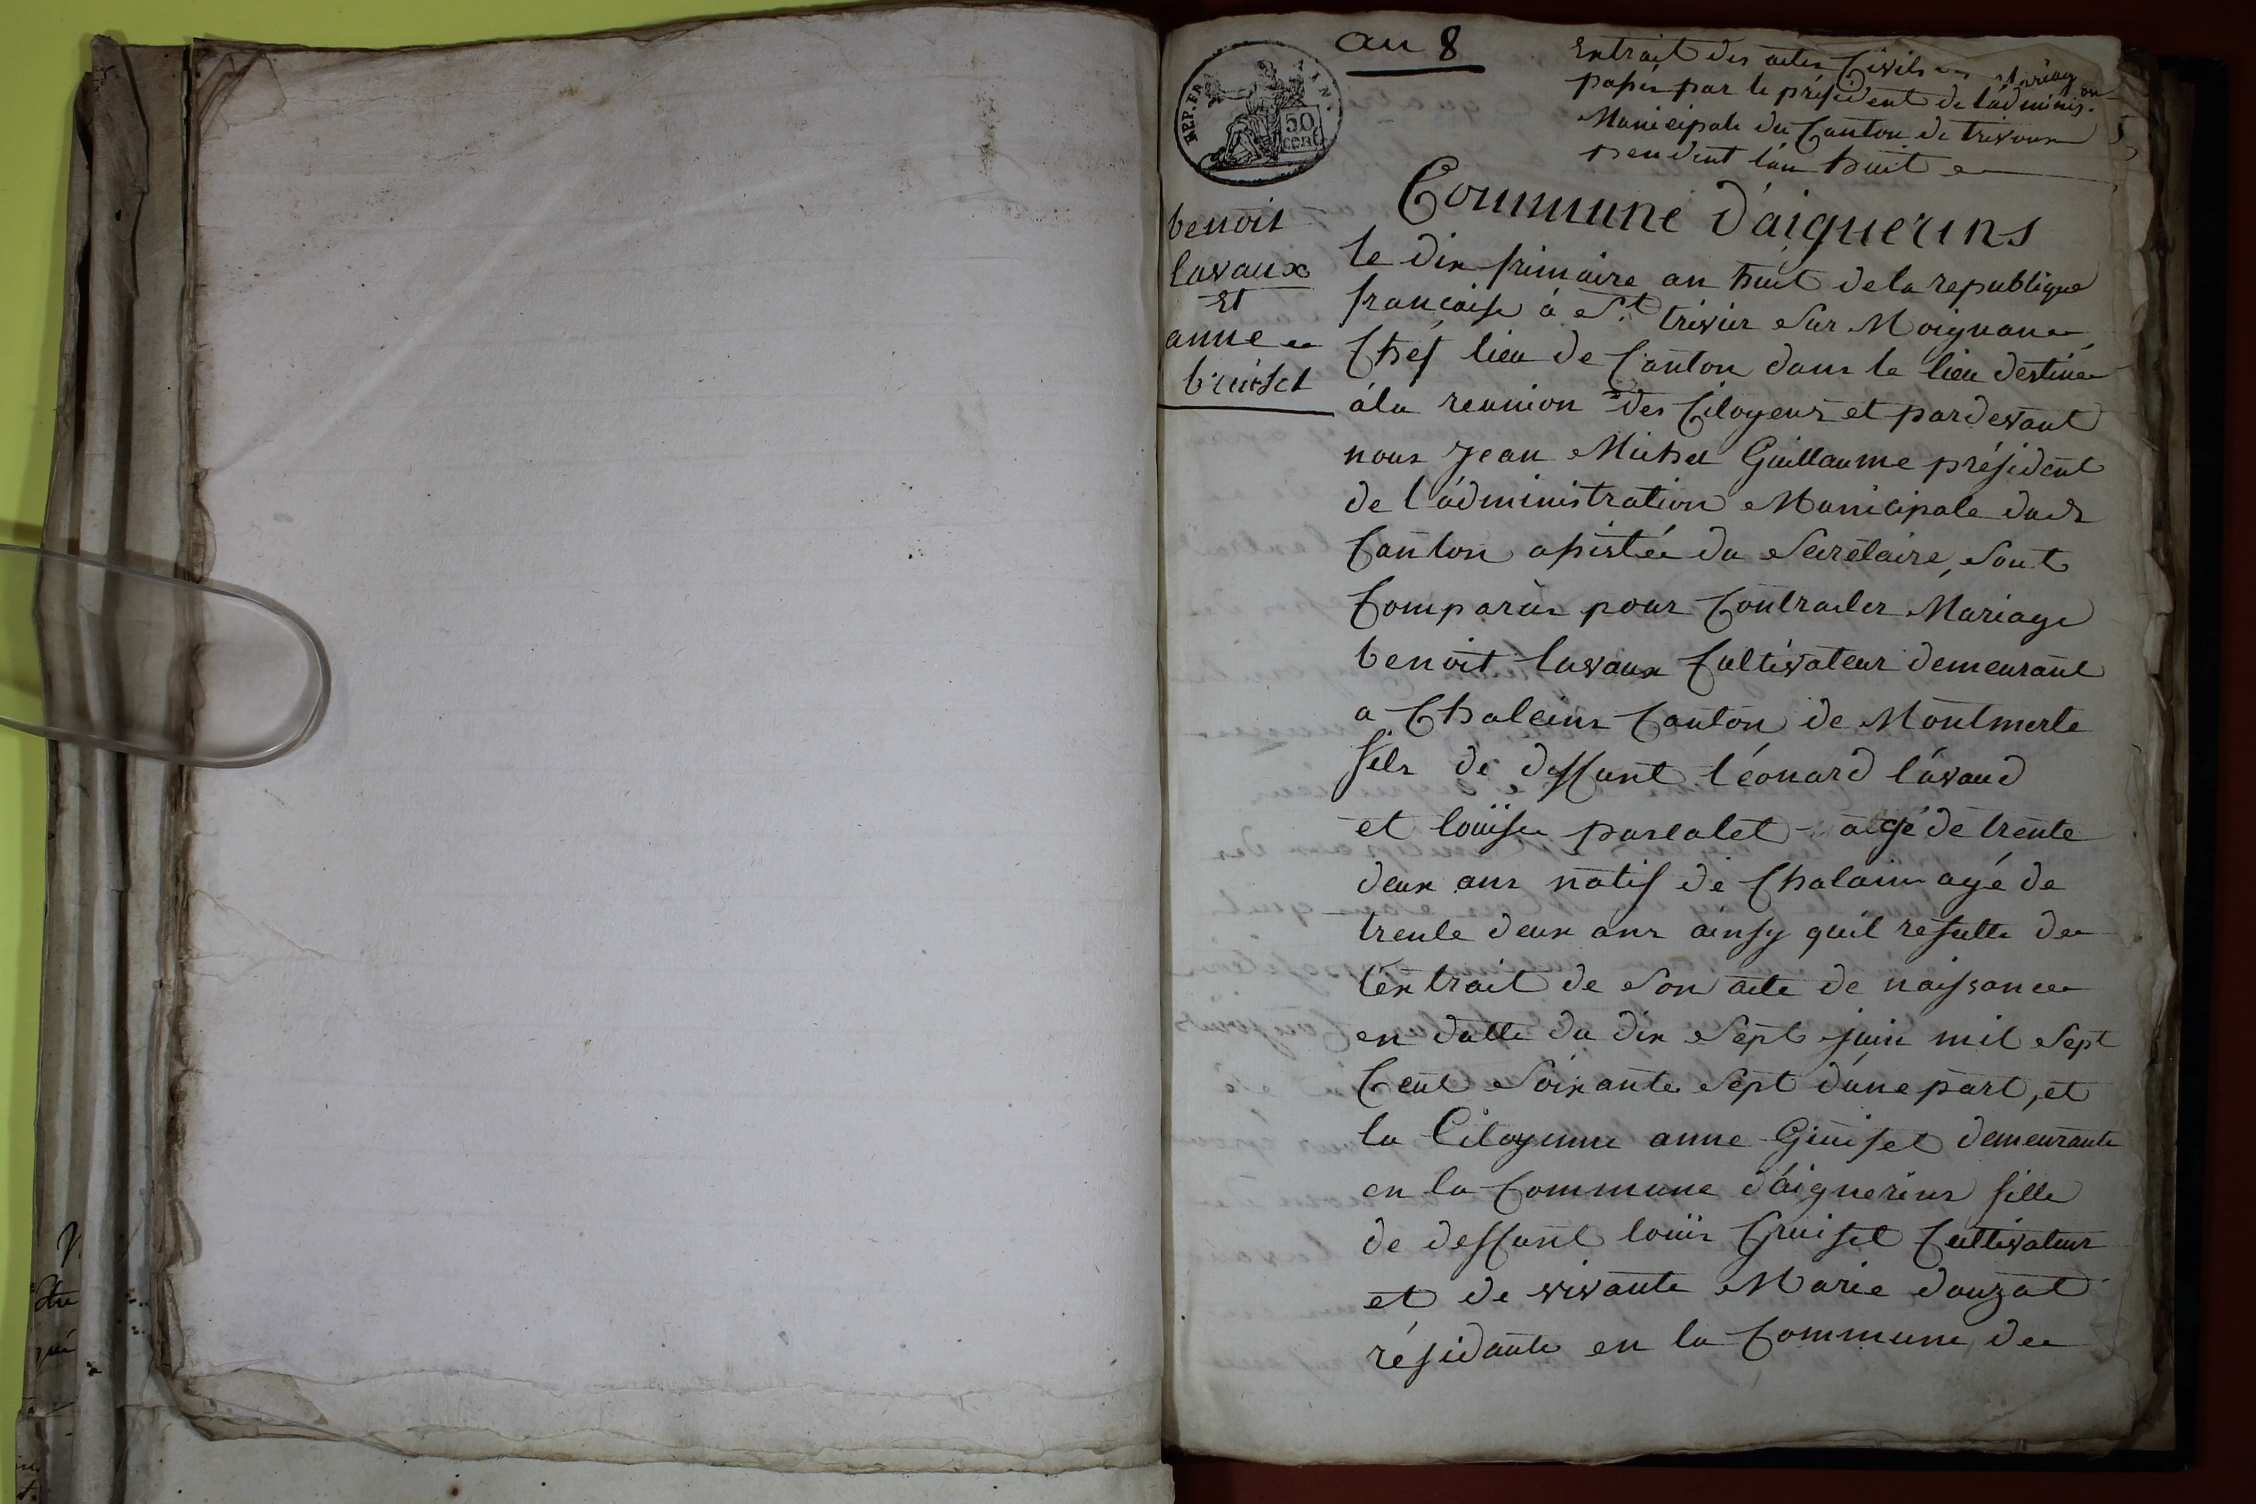 an 8
Extrait des actes Civils
passés par le président de l'adminis-
Municipale du Canton de trivour
pendent l'an huit
REP. FRA
50
cent
Commune d'aiguerins
benoit
lavaux
Et
anne
le dix frimaire an huit de la republique
francaise à St. trivier sur Moignan
Chef lieu de Canton dans le lieu destinée
à la reunion des Citoyens et pardevant
nous Jean Michel Guillaume président
de l'administration Municipale dud
Canton assistée du Secrétaire, sont
Comparus pour Contracter Mariage
benoit lavaux Cultivateur demeurant
a Chaleins Canton de Montmerle
fils de deffunt léonard lavaud
et louïse pascalet agé de trente
deux ans natif de Chalains agé de
trente deux ans ainsy quil resulte de
l'extrait de son acte de naissance
en datte du dix sept juin mil sept
Cent soixante sept d'une part, et
la Citoyenne anne Gruisel demeurante
en la Commune d'aiguerins fille
de deffunt louïs Gruisel Cultivateur
et de vivante Marie dauzat
résidante en la Commune de